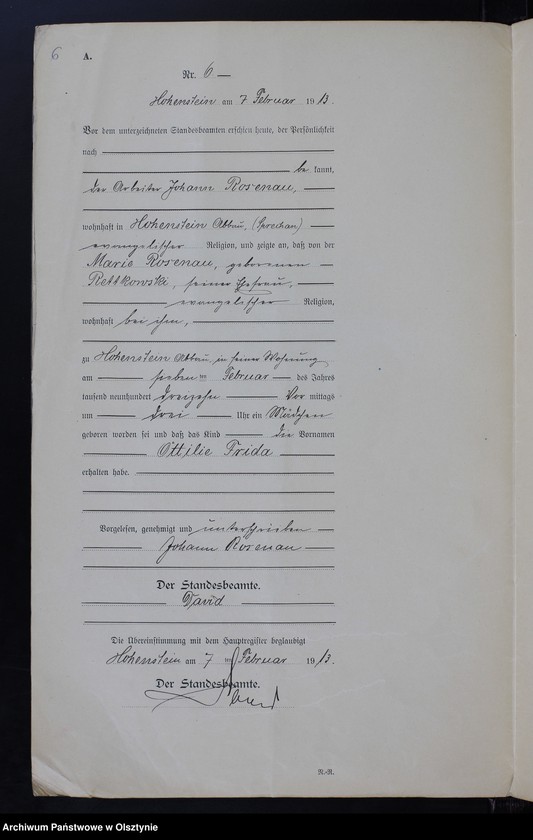 6
A.
Nr. 6
Hohenstein am 7 Februar 1913.
Vor dem unterzeichneten Standesbeamten erschien heute, der Persönlichkeit
nach
be kannt,
der Arbeiter Johann Rosenau,
wohnhaft in Hohenstein Abbau,
evangelischer Religion, und zeigte an, daß von der
Marie Rosenau, geborenen
Rettkowski, seiner Ehefrau,
evangelischer Religion,
wohnhaft bei ihm,
zu Hohenstein Abbau, in seiner Wohnung
am sieben ten Februar des Jahres
tausend neunhundert dreizehn Vor mittags
um drei Uhr ein Mädchen
geboren worden sei und daß das Kind die Vornamen
Ottilie Frida
erhalten habe.
Vorgelesen, genehmigt und unterschrieben
Johann Rosenau
Der Standesbeamte.
David
Die Übereinstimmung mit dem Hauptregister beglaubigt
Hohenstein am 7 ten Februar 1913.
Der Standesbeamte.
David
N.-R.
Archiwum Państwowe w Olsztynie